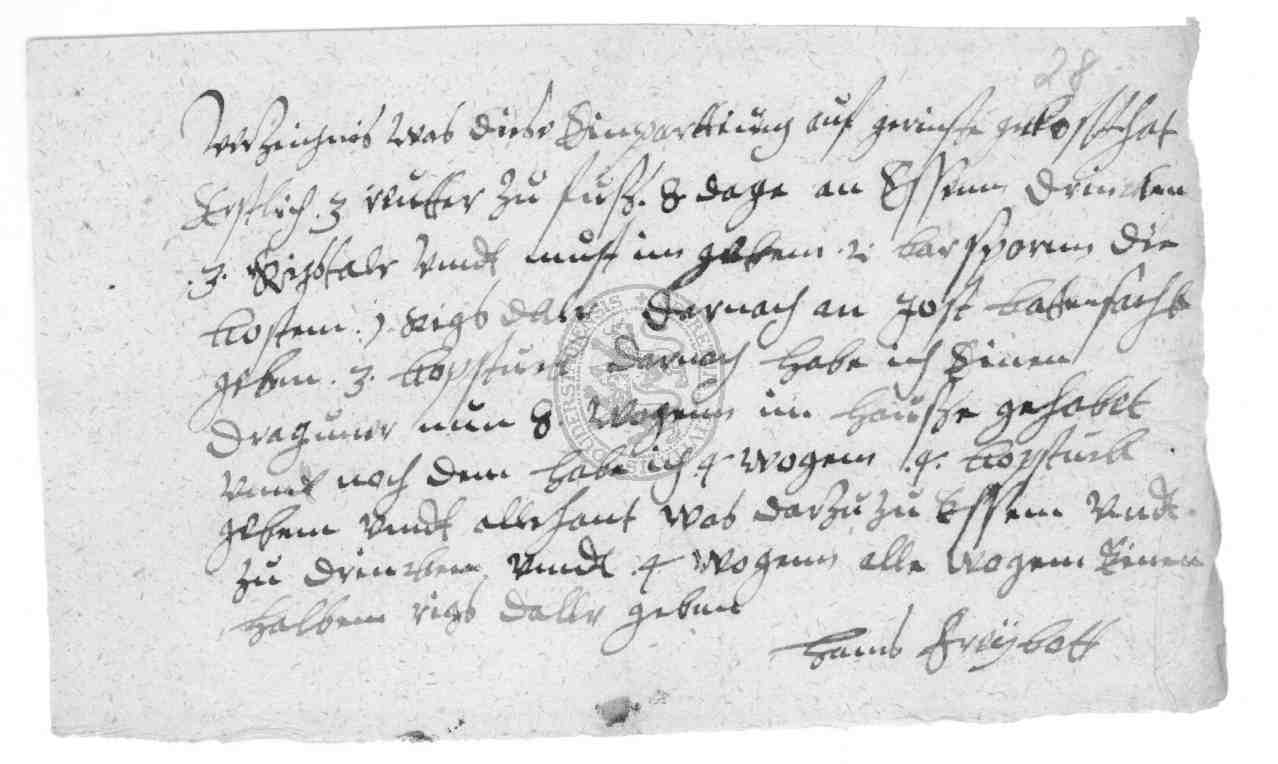 28
Verzeichnis was diese Einpartirung auf gerinste gekost hat
Erstlich 3 reutter zu fusz. 8 dage an Essenn drincken
.3. Rigstalr vndt must im gebenn 2 bar sporenn die
kostenn .1. Rigs dalr darnach an Jost
geben .3. kopstuck darnach habe ich Einen
draguner nun 8. wogenn im hausze gehabet
vnndt noch dem habe ich 4 wogenn .4. kopstuck
gebenn vndt allerhant was darzu zu Essenn vndt
zu drincken vnndt 4 wogenn alle wogenn Einen
halbenn rigs dallr geben
Hanns Freybott